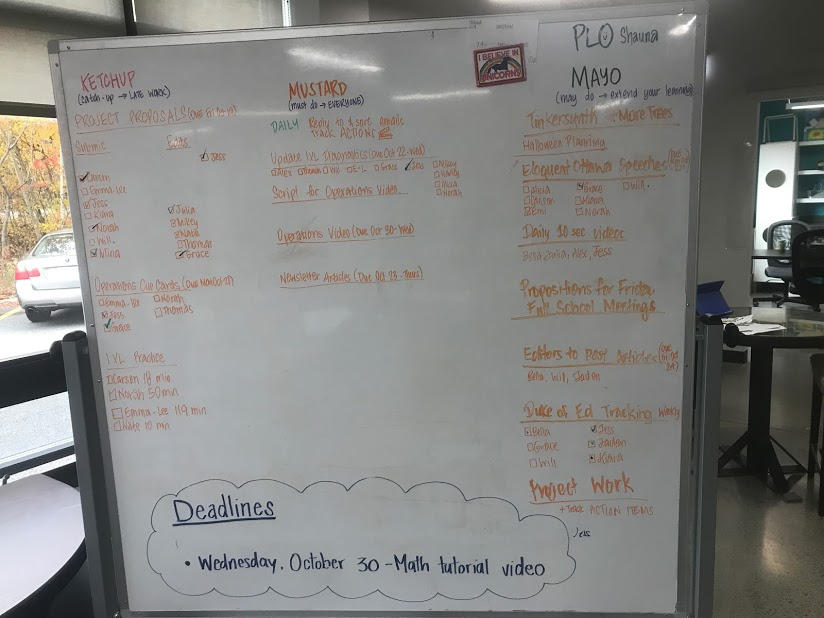 PLO Shauna
I BELIEVE IN
UNICORNS
KETCHUP
(catch-up → LATE WORK)
PROJECT PROPOSALS
Submit
Edits
Jess
Emma-Lee
Jess
Kiana
Norah
Will
Mina
Julia
Mikey
Nate
Thomas
Grace
Operations Cue Cards (Due Mon Oct 21)
Emma-Lee
Norah
Jess
Thomas
Grace
IXL Practice
Carsen 18 min
Norah 50 min
Emma-Lee 119 min
Nate 10 min
MUSTARD
(must do → EVERYONE)
DAILY Reply to & sort emails
Track ACTIONS
Update IXL Diagnostics (Due Oct 22-Wed)
Alex Thomas Will E-L Grace Jess
Mikey
Norah
Script for Operations Video
Operations Video (Due Oct 30-Wed)
Newsletter Articles (Due Oct 23-Thurs)
MAYO
(may do → extend your learning)
Tinkersynth: More Trees
Halloween Planning
Eloquent Ottawa Speeches
Alicia Grace Will
Carson Kiana
Emi Norah
Daily 10 sec videos
Alex, Jess
Propositions for Friday
Full School Meetings
Editors to Post Articles
Bella, Will, Jaden
Duke of Ed Tracking Weekly
Bella Jess
Grace Jaden
Will Kiana
Project Work
+ Track ACTION ITEMS
Jess
Deadlines
• Wednesday, October 30 - Math tutorial video